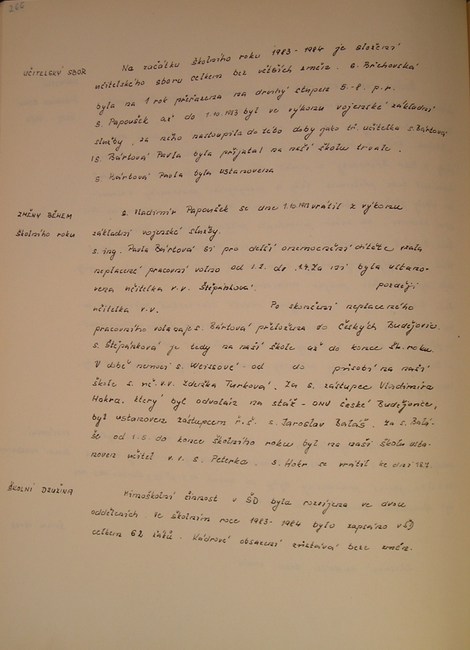 266
UČITELSKÝ SBOR
Na začátku školního roku 1983-1984 je složení
učitelského sboru celkem bez větších změn. s. Břehovská
byla na 1 rok přeřazena na druhý stupeň 5.-8. p.r.
s. Papoušek až do 1.10.1983 byl ve výkonu vojenské základní
služby, za něho nastoupila do této doby jako tř. učitelka s. Bártová
ing. Bártová Pavla byla přijata na naši školu trvale.
s. Bártová Pavla byla ustanovena
ZMĚNY BĚHEM
školního roku
s. Vladimír Papoušek se dne vrátil z výkonu
základní vojenské služby.
s. ing. Pavla Bártová si pro delší onemocnění dítěte vzala
neplacené pracovní volno od 1.2. do Za ni byla ustano-
vena učitelka v.v. Štěpánková. později
učitelka v.v. Po skončení neplaceného
pracovního volna je s. Bártová přeložena do Českých Budějovic.
s. Štěpánková je tedy na naší škole až do konce šk. roku.
V době nemoci s. Weissové od do působí na naší
škole s. vč. v.v. Zdeňka Turková. Za s. zástupce Vladimíra
Hokra, který byl odvolán na stáž - ONV České Budějovice,
byl ustanoven zástupcem ř.š. s. Jaroslav Baláš. Za s. Balá-
še od 1.5. do konce školního roku byl na naši školu usta-
noven učitel v.v. s. Peterka. s. Hokr se vrátil ke dni
ŠKOLNÍ DRUŽINA
Mimoškolní činnost v ŠD byla rozvíjena ve dvou
odděleních. Ve školním roce 1983-1984 bylo zapsáno v ŠD
celkem 62 žáků. Kádrové obsazení zůstává beze změn.